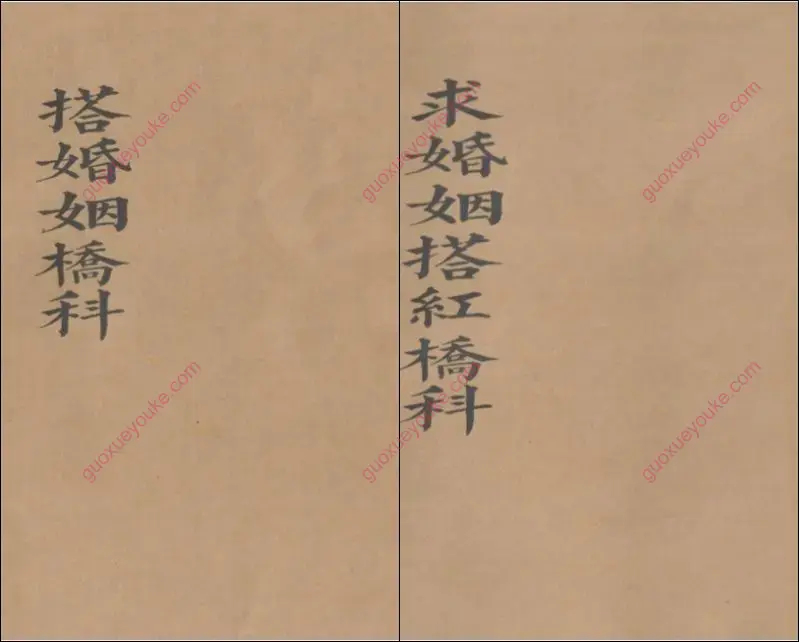 搭婚姻橋科
求婚姻搭紅橋科
guoxueyouke.com
guoxueyouke.com
guoxueyouke.com
guoxueyouke.com
guoxueyouke.com
guoxueyouke.com